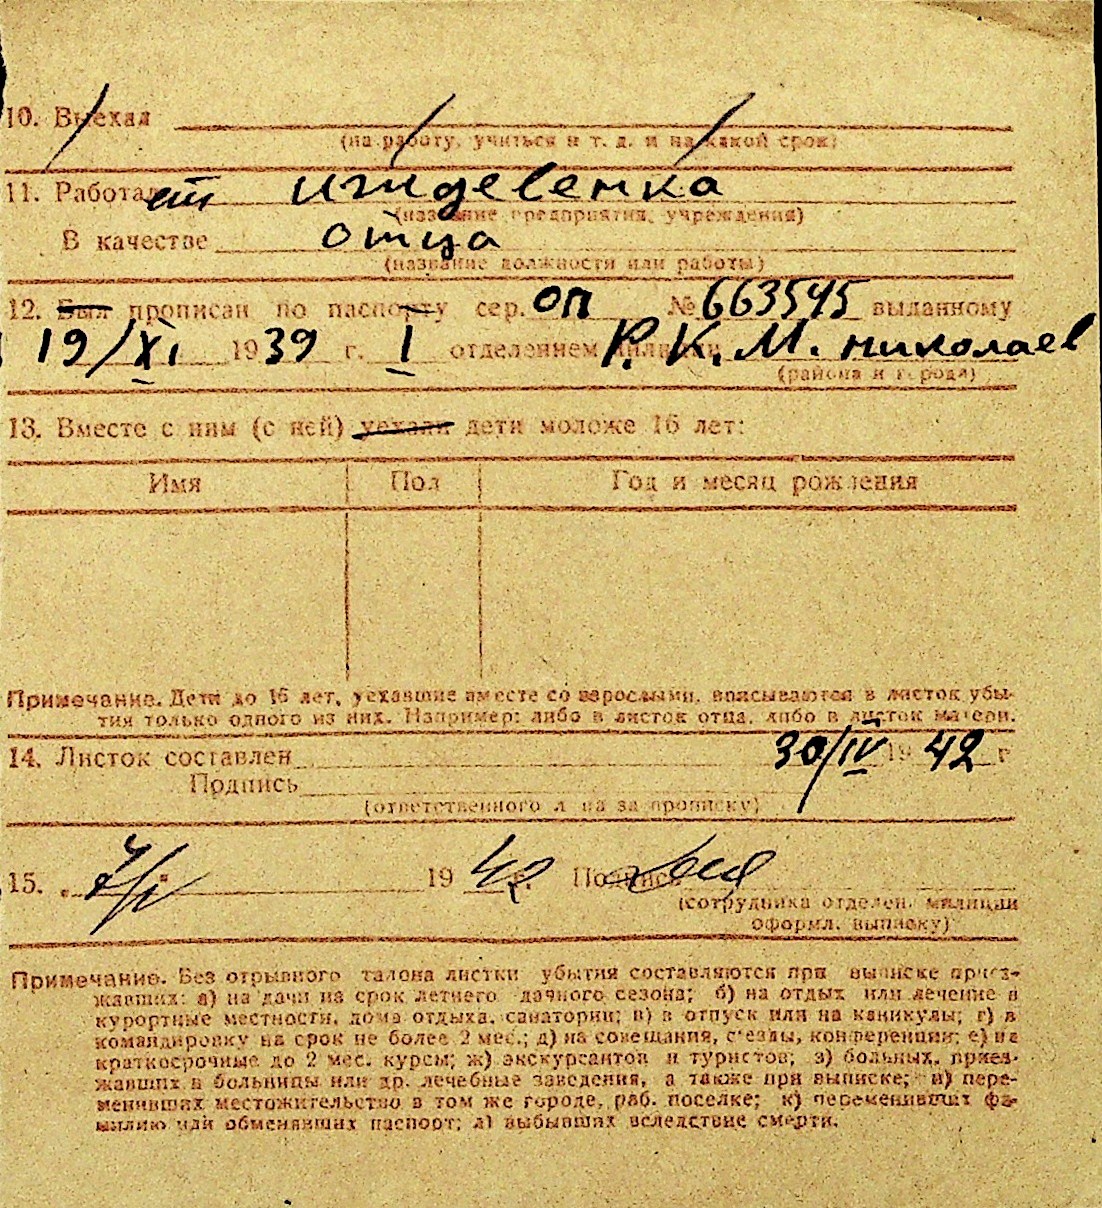 10. Выехал
(на работу, учиться и т. д. и на какой срок)
11. Работает иждевенка
(название предприятия, учреждения)
В качестве отца
(название должности или работы)
12. Был прописан по паспорту сер. ОП № 663545 выданному
19/XI 1939 г. I отделением милиции Р. К. М. николаев
(района и города)
13. Вместе с ним (с ней) уехали дети моложе 16 лет:
Имя Пол Год и месяц рождения
Примечание. Дети до 16 лет, уехавшие вместе со взрослыми, вписываются в листок убы-
тия только одного из них. Например: либо в листок отца, либо в листок матери.
14. Листок составлен 30/IV 1942 г
Подпись
(ответственного лица за прописку)
15. 1942 г. Подпись
(сотрудника отделен. милиции
оформл. выписку)
Примечание. Без отрывного талона листки убытия составляются при выписке приез-
жавших: а) на дачи на срок летнего дачного сезона; б) на отдых или лечение в
курортные местности, дома отдыха, санатории; в) в отпуск или на каникулы; г) в
командировку на срок не более 2 мес.; д) на совещания, с'езды, конференции; е) на
краткосрочные до 2 мес. курсы; ж) экскурсантов и туристов; з) больных, приез-
жавших в больницы или др. лечебные заведения, а также при выписке; и) пере-
менивших местожительство в том же городе, раб. поселке; к) переменивших фа-
милию или обменявших паспорт; л) выбывших вследствие смерти.